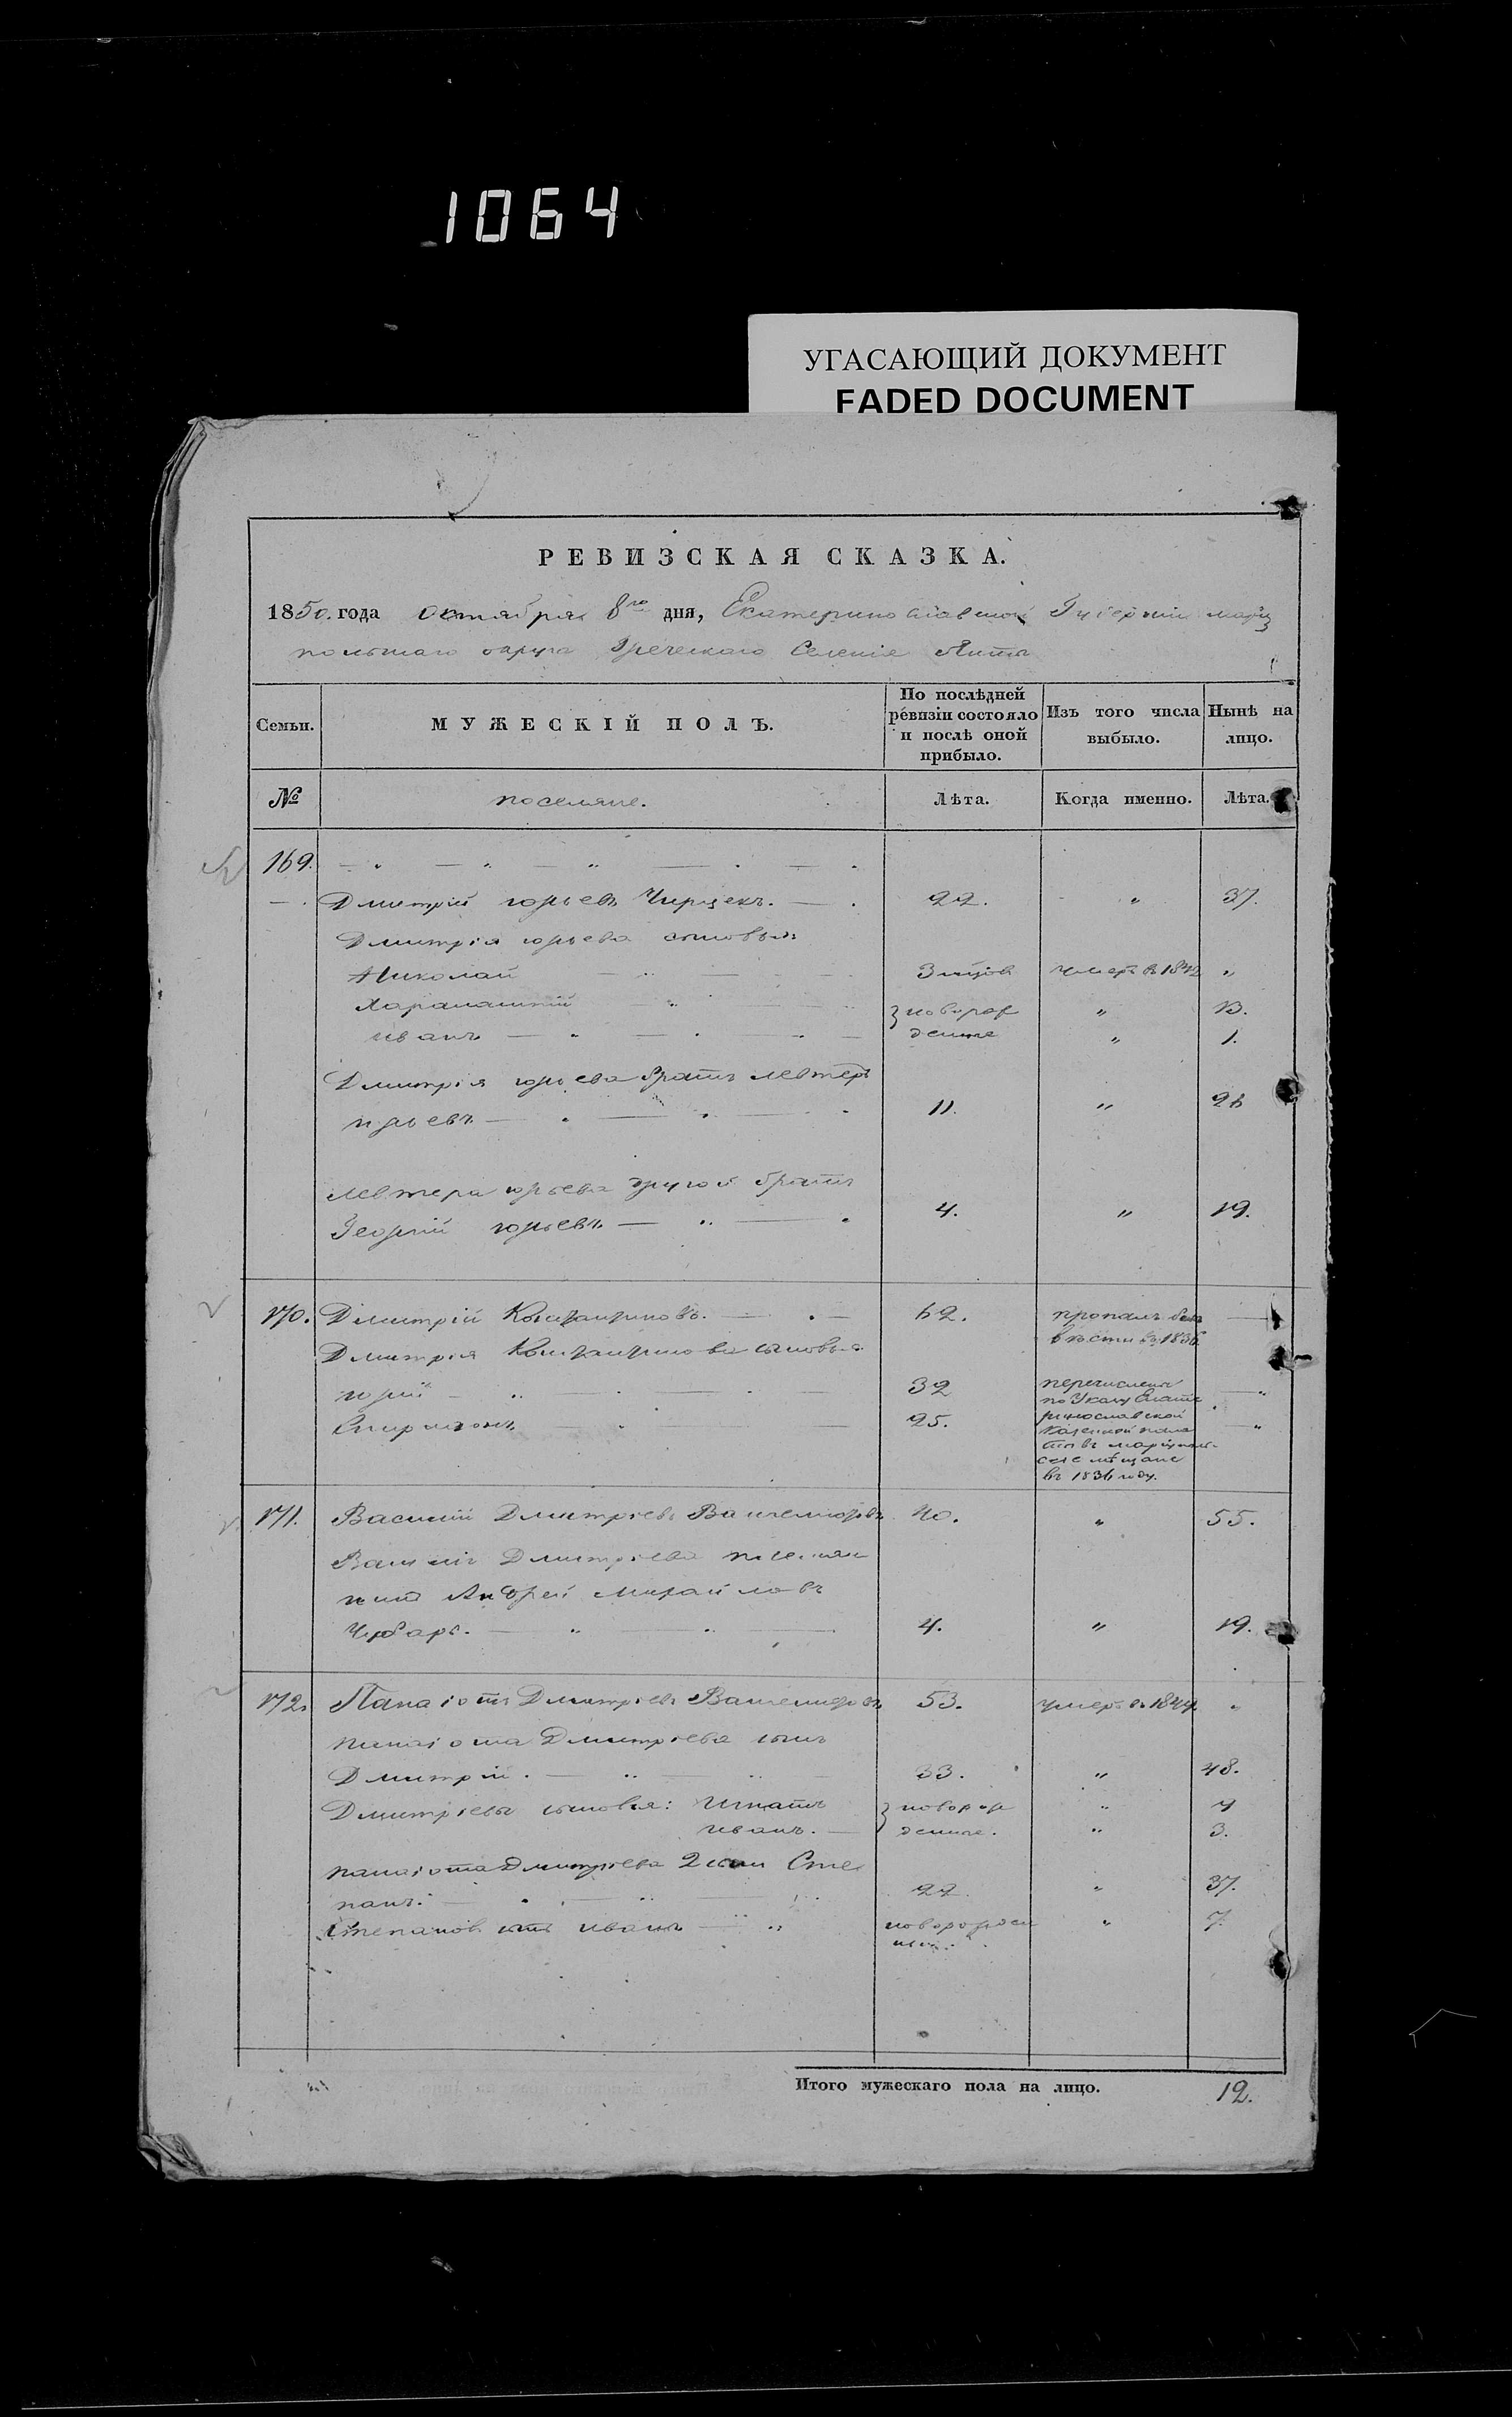 1064
УГАСАЮЩИЙ ДОКУМЕНТ
FADED DOCUMENT
РЕВИЗСКАЯ СКАЗКА.
1850. года октября 8го дня, Екатеринославской Губернии мариу
польскаго округа Греческаго Селенiе
Семьи. МУЖЕСКІЙ ПОЛЪ. По послѣдней ревизіи состояло и послѣ оной прибыло. Изъ того числа выбыло. Нынѣ на лицо.
№ поселяне. Лѣта. Когда именно. Лѣта.
169.
Дмитрій юрьевъ 22. " 37.
Дмитрія юрьева сыновья
Николай умеръ в 1842 "
Харлампій новорож " 13.
иванъ денные " 1.
Дмитрія юрьева братъ левтеръ
юрьевъ 11. " 26
левтера юрьева другой братъ
Георгій юрьевъ 4. " 19.
170. Дмитрій Константиновъ. 62. пропалъ безъ
вѣсти въ 1836.
Дмитрія Константинова сыновья
юрій 32 перечислены
по Указу Екате
Спиридонъ 25. ринославской
Казенной пала
ты въ маріуполь
скіе мѣщане
въ 1836 году.
171. Василій Дмитріевъ 40. " 55.
Василія Дмитріева племян
никъ Андрей михайловъ
4. " 19.
172. Панаіотъ Дмитріевъ 53. умеръ в 1844. "
панаіота Дмитріева сынъ
Дмитрій. 33. " 48.
Дмитріевы сыновья: Игнатъ новорож " 4
иванъ. денные. " 3.
панаіота Дмитріева 2 сынъ Сте
панъ. 22. " 37.
Степановъ сынъ иванъ новорожден " 7.
ный.
Итого мужескаго пола на лицо. 12.